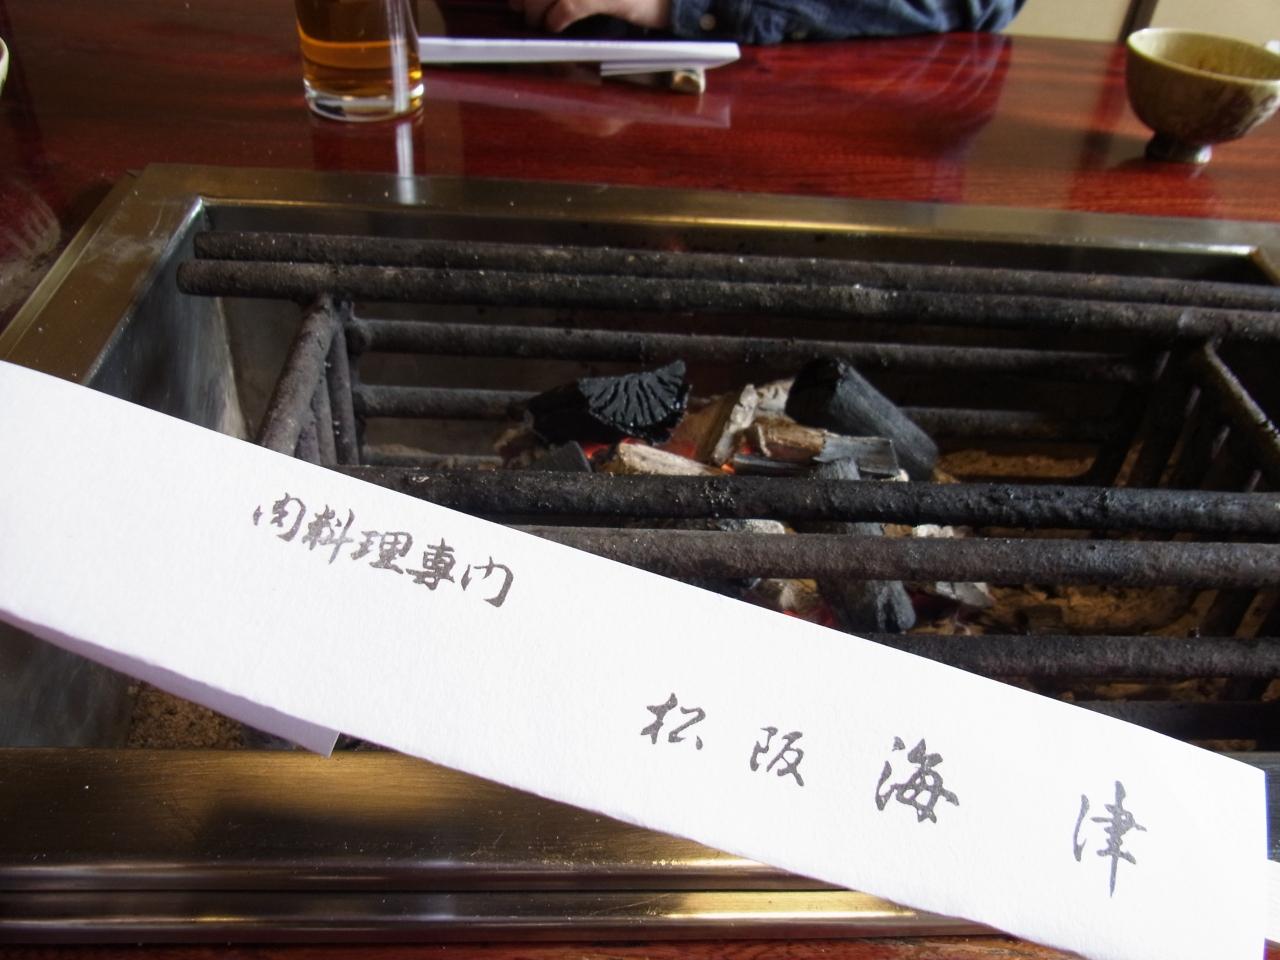 肉料理専門
松阪 海津